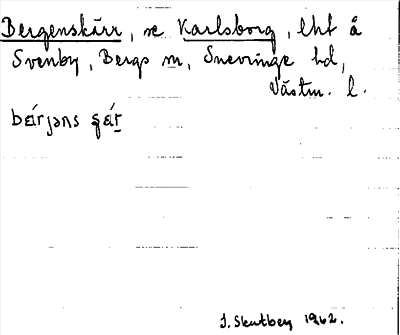 Bergenskärr, se Karlsborg, lht å
Svenby, Bergs sn, Snevringe hd,
Västm. l.
bárjəns ʂár
1962.